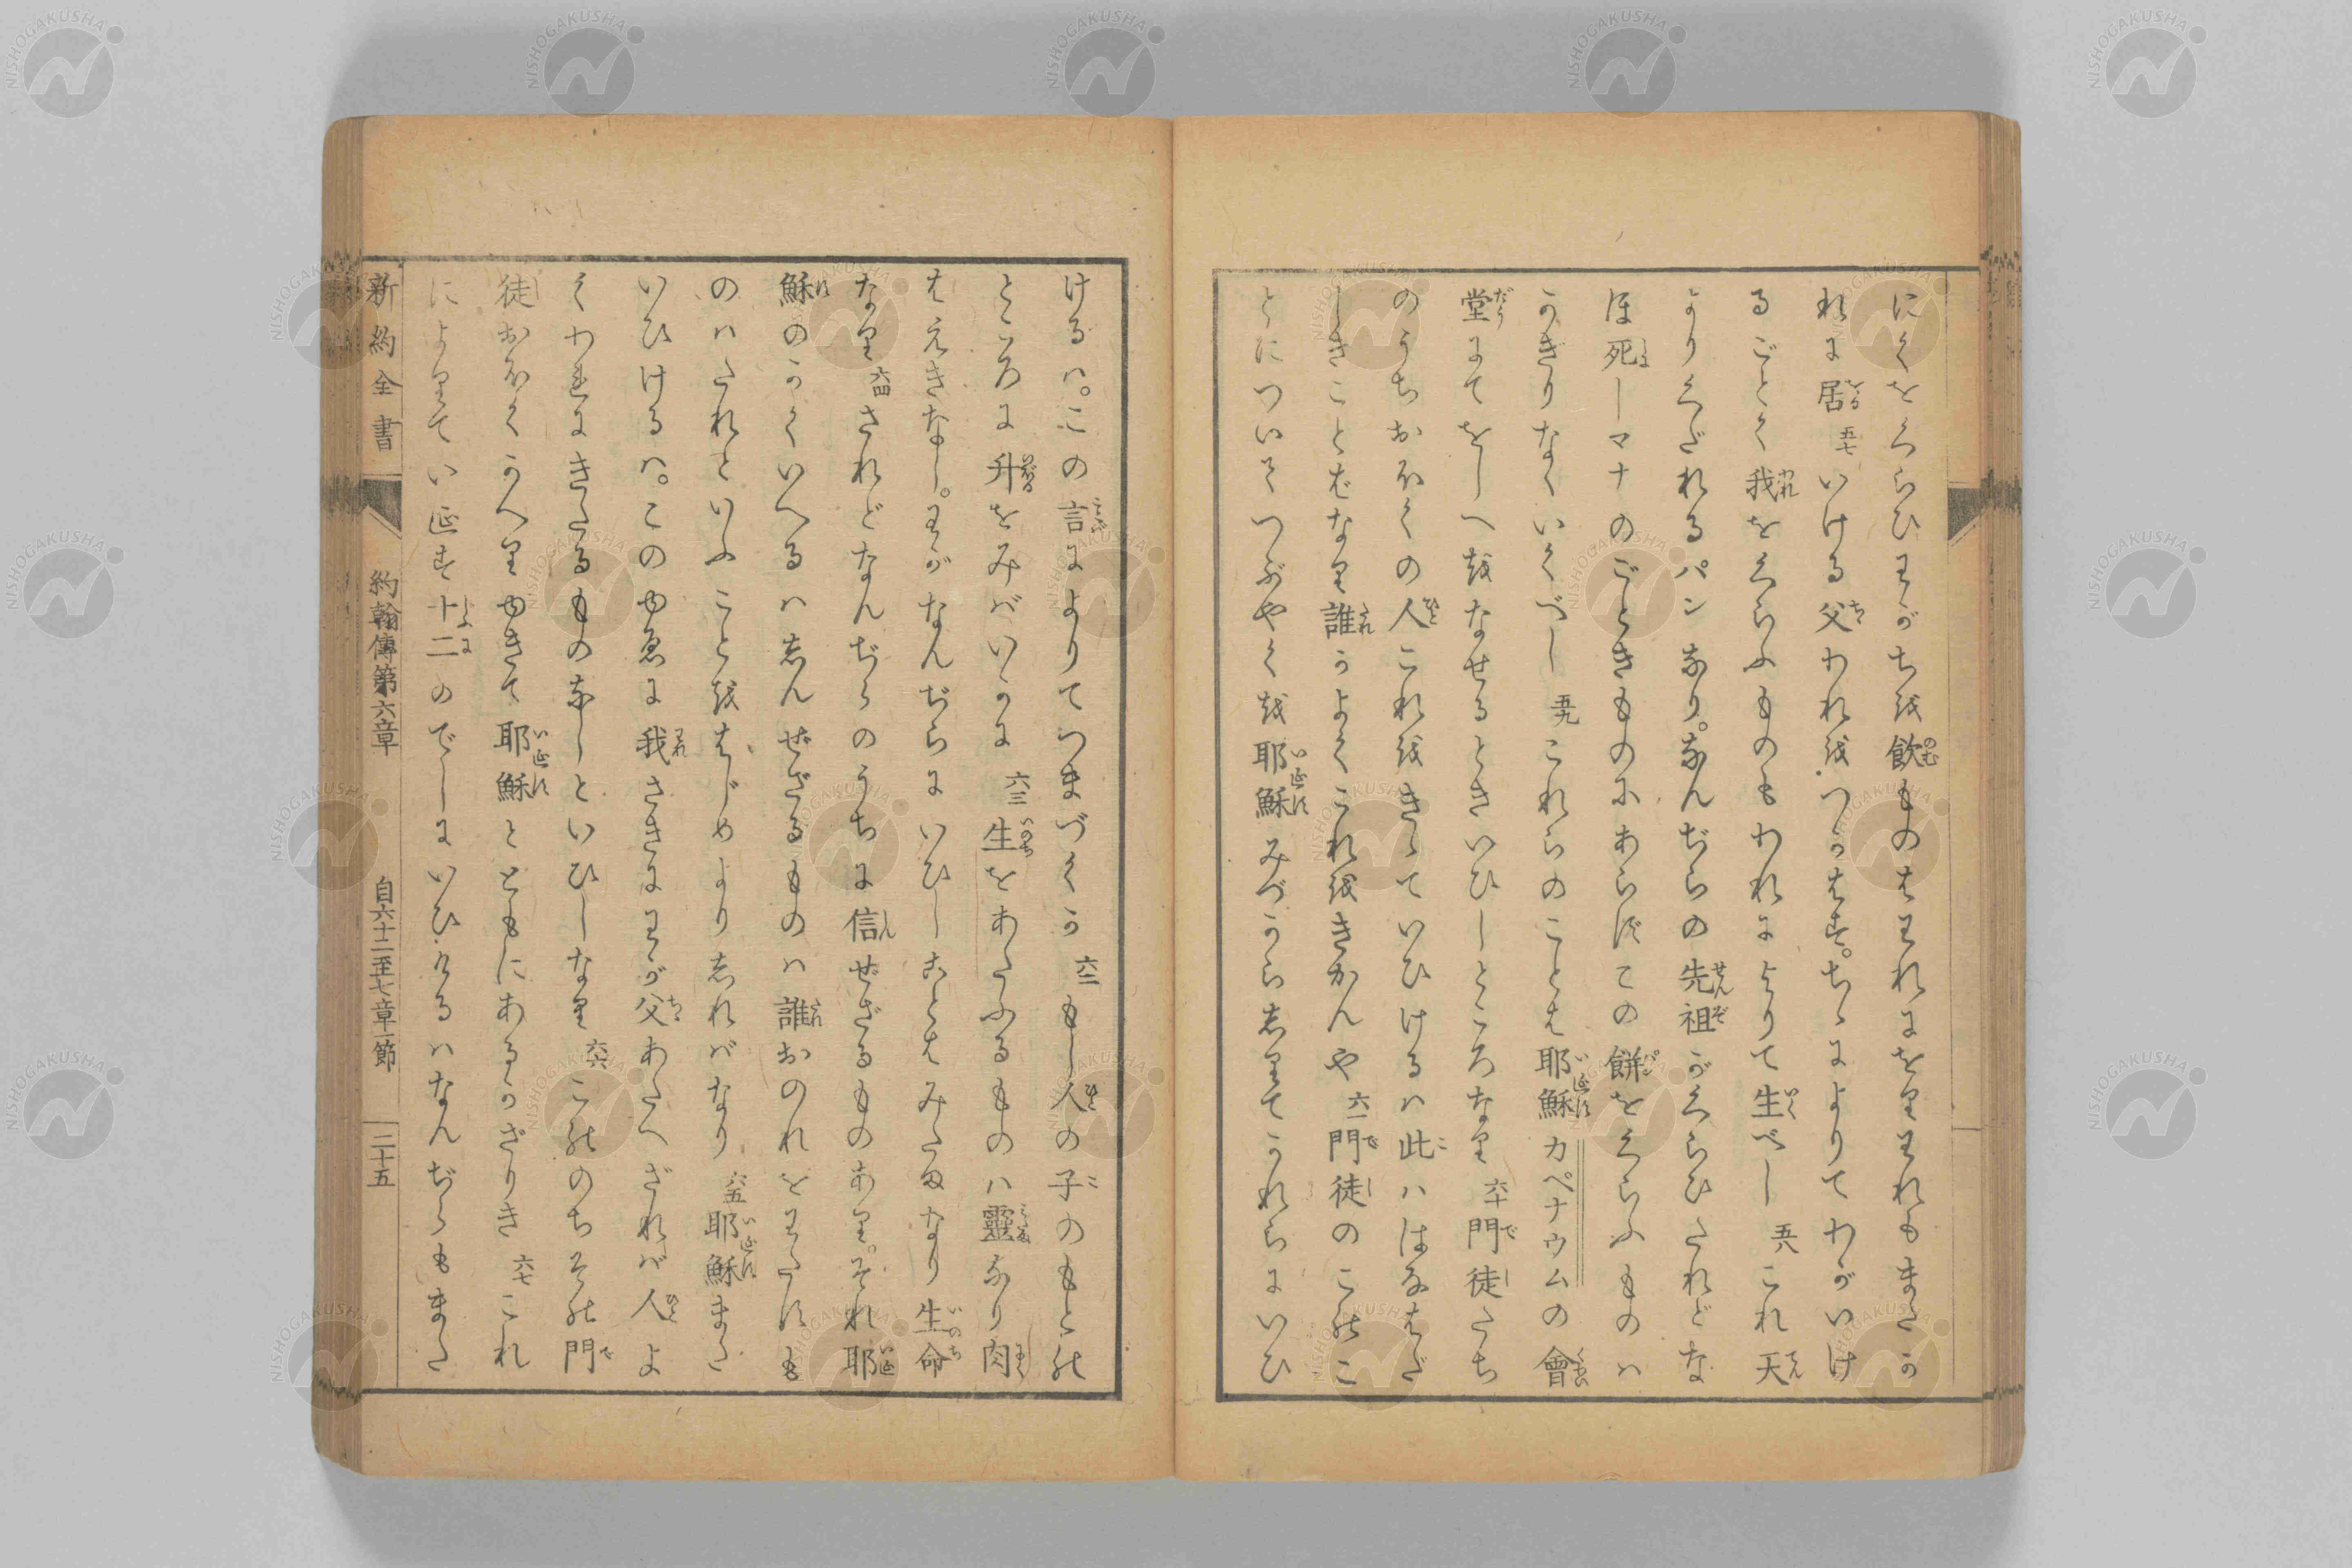 にくをくらひわがちを飲ものはわれにをりわれもまたか
れに居 五七 いける父われをつかはす。ちゝによりてわがいけ
るごとく我をくらふものもわれによりて生べし 五八 これ天
よりくだれるパンなり。なんぢらの先祖がくらひたれどな
ほ死しマナのごときものにあらずこの餅をくらふものハ
かぎりなくいくべし 五九 これらのことは耶穌カペナウムの會
堂にてをしへをなせるときいひしところなり 六十 門徒たち
のうちおほくの人これをきゝていひけるハ此ハはなはだ
しきことばなり誰かよくこれをきかんや 六一 門徒のこのこ
とについてつぶやくを耶穌みづから志りてかれらにいひ
けるハ。この言によりてつまづくか 六二 もし人の子のもとの
ところに升をみバいかに 六三 生をあたふるものハ靈なり肉
はえきなし。わがなんぢらにいひしことはみたまなり生命
なり 六四 されどなんぢらのうちに信ぜざるものあり。それ耶
穌のかくいへるハ志んぜざるものハ誰おのれをわたすも
のハたれといふことをはじめより志れバなり 六五 耶穌また
いひけるハ。このゆゑに我さきにわが父あたへざれバ人よ
くわれにきたるものなしといひしなり 六六 こののちその門
徒おほくかへりゆきて耶穌とともにあるかざりき 六七 これ
によりていゑす十二のでしにいひけるハなんぢらもまた
新約全書 約翰傳第六章 自六十二至七章一節 二十五